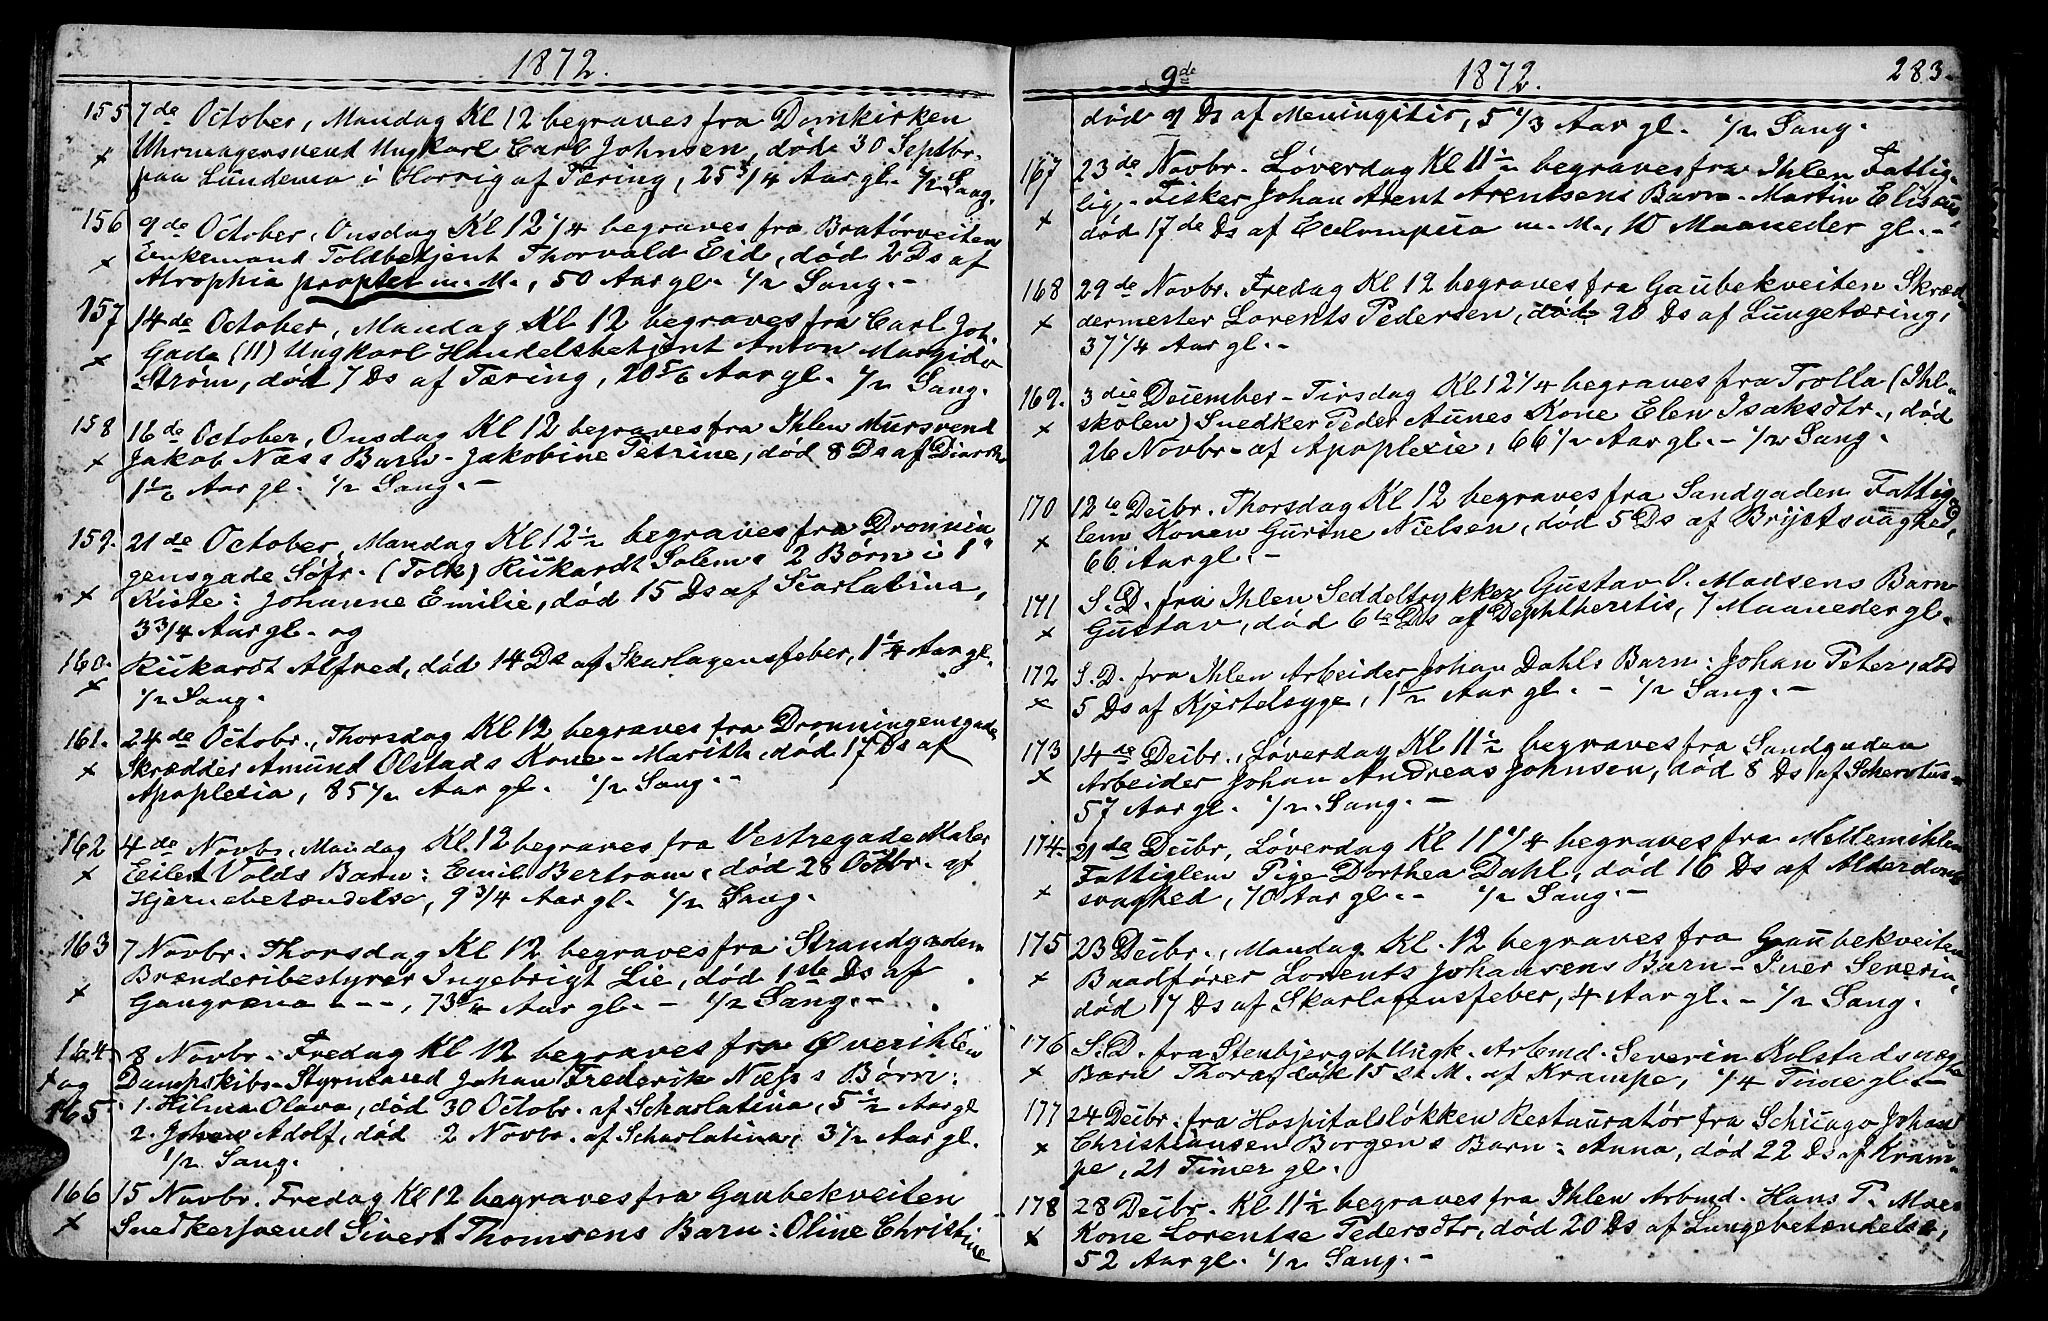 1872.
155 7de October, Mandag Kl 12 begraves fra Domkirken
x Uhrmagersvend Ungkarl Carl Johnsen, død 30 Septbr.
paa Sundema i Horrig af Tæring, 25 3/4 Aar gl. 1/2 Sang.
156 9de October, Onsdag Kl 12 1/4 begraves fra Bratørveiten
x Enkemand Toldbetjent Thorvald Eid, død 2 Ds af
Atrophia propter m. M., 50 Aar gl. 1/2 Sang. -
157 14de October, Mandag Kl 12 begraves fra Carl Joh.
x Gade (11) Ungkarl Handelsbetjent Anton Margido
Strøm, død 7 Ds af Tæring, 20 5/6 Aar gl. 1/2 Sang.
158 16de October, Onsdag Kl 12 begraves fra Ihlen Mursvend
x Jakob Næss Barn - Jakobine Petrine, død 8 Ds af Diarrh
1 1/6 Aar gl. 1/2 Sang. -
159. 21de October, Mandag Kl 12 1/2 begraves fra Dronnin
gensgade Søfr. (Tolk) Rickardt Solems 2 Børn i 1
x Kiste: Johanne Emilie, død 15 Ds af Scarlatina,
3 3/4 Aar gl. og
160. Rickardt Alfred, død 14 Ds af Skarlagensfeber, 1 1/4 Aar gl.
x 1/2 Sang.
161. 24de Octobr., Thorsdag Kl 12 begraves fra Dronningensgade
x Skrædder Amund Olstads Kone - Marith, død 17 Ds af
Apoplexia, 85 1/2 Aar gl. 1/2 Sang. -
162 4de Novbr. Mandag Kl. 12 begraves fra Vestregade Maler
x Eilert Volds Barn: Emil Bertram, død 28 Octbr. af
Hjernebetændelse, 9 3/4 Aar gl. 1/2 Sang.
163 7 Novbr. Thorsdag Kl 12 begraves fra Strandgaden
x Brænderibestyrer Ingebrigt Lie, død 1ste Ds af
Gangræna - - -, 73 Aar gl. - 1/2 Sang. -
164 8 Novbr. Fredag Kl 12 begraves fra Øverihlen
x og Dampskibs-Styrmand Johan Frederik Næss's Børn:
165 1. Hilma Olava, død 30 Octobr. af Scharlatina, 5 1/2 Aar gl
2. Johan Adolf, død 2 Novbr. af Scharlatina, 3 1/2 Aar gl.
1/2 Sang.
166 15 Novbr. Fredag Kl 12 begraves fra Gaubekveiten
x Snedkersvend Sivert Thomsens Barn: Oline Christine
9de 1872. 283.
død 9 Ds af Meningitis, 5 1/3 Aar gl. 1/2 Sang.
167 23de Novbr. Løverdag Kl 11 1/2 begraves fra Ihlen Fattig-
lig. Fisker Johan Arent Arentsens Barn - Martin Elisæus
x død 17de Ds af Eclampsia m. M., 10 Maaneder gl. -
168 29de Novbr. Fredag Kl 12 begraves fra Gaubekveiten Skræd
x dermester Lorents Pedersen, død 20 Ds af Lungetæring,
37 1/4 Aar gl. -
169. 3die December - Tirsdag Kl 12 1/4 begraves fra Trolla (Ihl-
x skolen) Snedker Peder Aunes Kone Elen Isaksdtr., død
26 Novbr. af Apoplexie, 66 1/2 Aar gl. - 1/2 Sang.
170 12te Decbr. Thorsdag Kl 12 begraves fra Sandgaden Fattig
x lem Konen Gurine Nielsen, død 5 Ds af Brystsvaghed,
66 Aar gl. -
171 S. D. fra Ihlen Seddeltrykker Gustav O. Madsens Barn
x Gustav, død 6te Ds af Dephtheritis, 7 Maaneder gl.
172 S. D. fra Ihlen Arbeider Johan Dahls Barn: Johan Peter, død
x 5 Ds af Kjertelsyge, 1 1/2 Aar gl. - 1/2 Sang. -
173 14de Decbr., Løverdag Kl 11 1/2 begraves fra Sandgaden
x Arbeider Johan Andreas Johnsen, død 8 Ds af
57 Aar gl. 1/2 Sang. -
174. 21de Decbr, Løverdag Kl 11 3/4 begraves fra Mellemihlen
x Fattiglem Pige Dorthea Dahl, død 16 Ds af Alderdoms
svaghed, 70 Aar gl. - 1/2 Sang. -
175 23 Decbr., Mandag Kl. 12 begraves fra Gaubekveiten
x Baadfører Lorents Johansens Barn - Iver Severin,
død 17 Ds af Skarlagensfeber, 4 Aar gl. - 1/2 Sang.
176 S. D. fra Stenbjerget Ungk. Arbmd. Severin Kolstads uægte
x Barn Thora, død 15 st M. af Krampe, 1/4 Time gl. -
177 24 Decbr. fra Hospitalsløkken Restauratør fra Schicago Johan
x Christiansen Borgens Barn: Anna, død 22 Ds af Kram-
pe, 21 Timer gl.
178 28 Decbr. Kl 11 1/2 begraves fra Ihlen Arbmd. Hans P. Moes
x Kone Lorentse Pedersdtr, død 20 Ds af Lungebetændelse,
52 Aar gl. 1/2 Sang. -